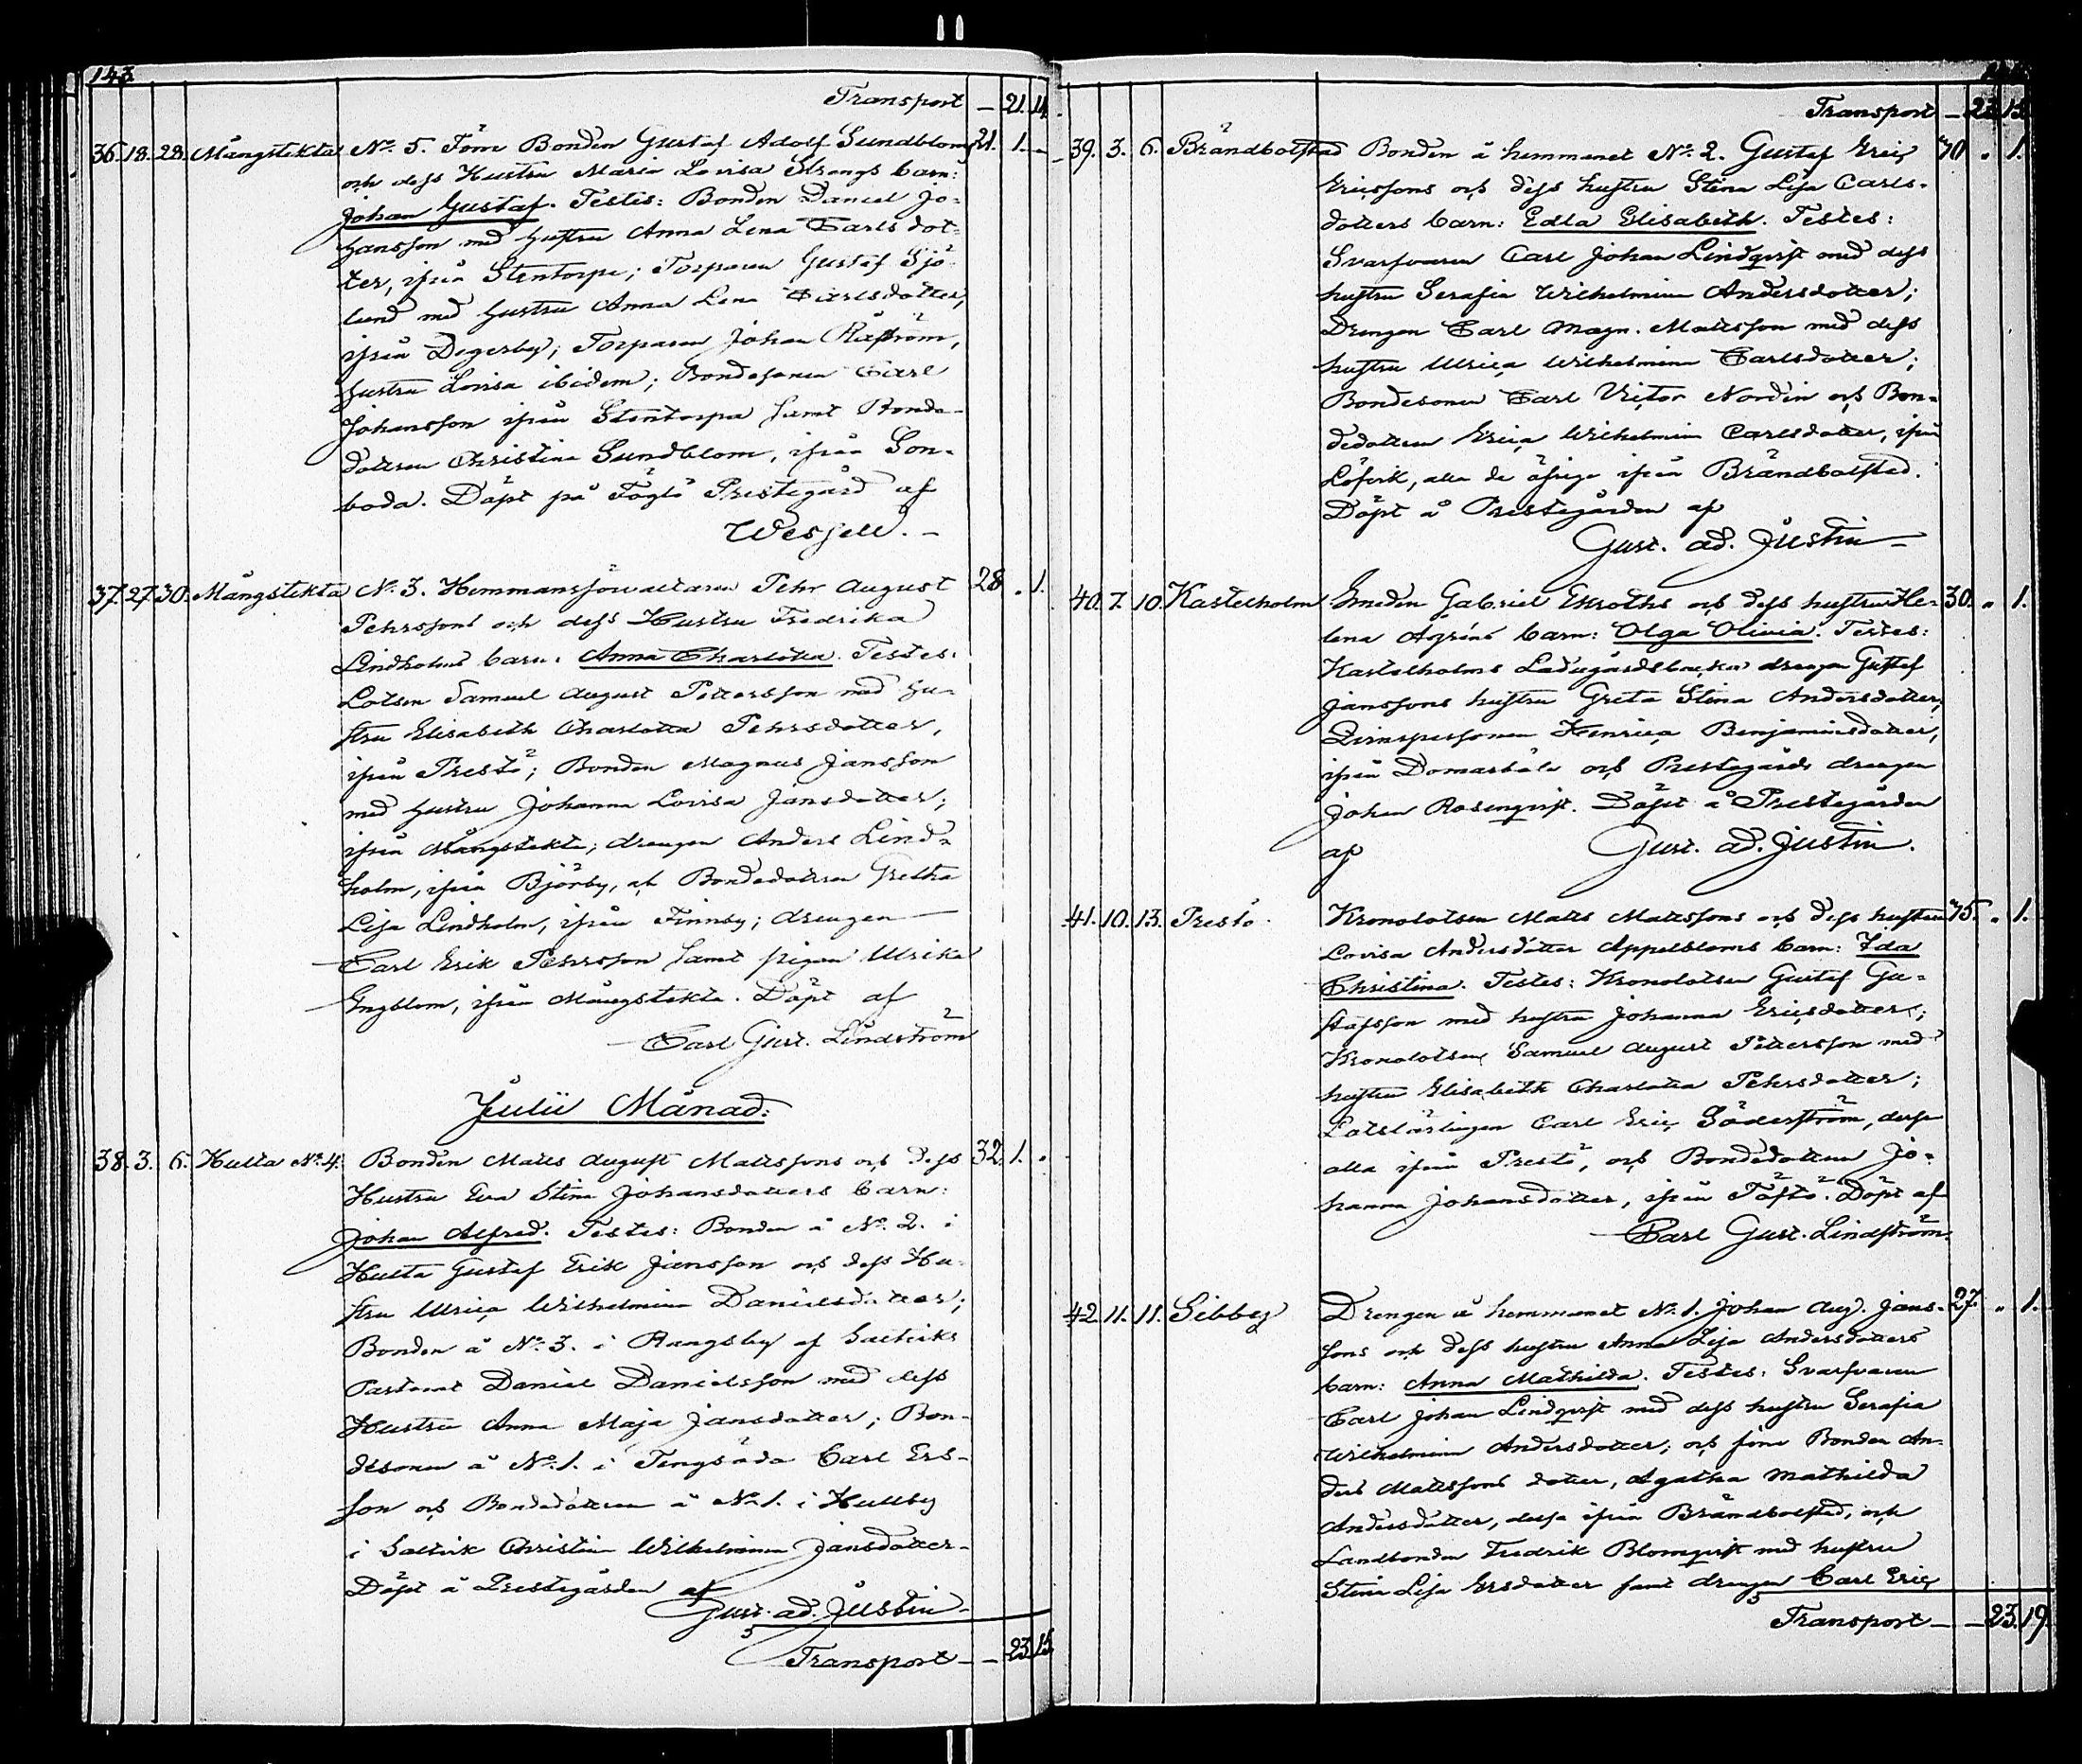 143
Transport — 21. 14.
36. 18. 28. Mångstekta No. 5. Före Bonden Gustaf Adolf Sundbloms 21. 1. —
och dess Hustru Maria Lovisa Strengs barn:
Johan Gustaf. Testes: Bonden Daniel Jo-
hansson med hustru Anna Lena Carlsdot-
ter, ifrån Stentorpa; Torparen Gustaf Sjö-
lund med hustru Anna Lena Carlsdotter,
ifrån Degerby; Torparen Johan
hustru Lovisa ibidem; Bondesonen Carl
Johansson ifrån Stentorpa samt Bonde-
dottren Christina Sundblom, ifrån Son-
boda. Döpt på Föglö Prestegård af
Wessell. —
37. 27. 30. Mångstekta No. 3. Hemmansförvaltaren Pehr August 28 . 1.
Pehrssons och dess Hustru Fredrika
Lindholms barn: Anna Charlotta. Testes:
Lotsen Samuel August Pettersson med hu-
stru Elisabeth Charlotta Pehrsdotter,
ifrån Prestö; Bonden Magnus Jansson
med hustru Johanna Lovisa Jansdotter;
ifrån Mångstekta; drengen Anders Lind-
holm, ifrån Björby, och Bondedottren Gretha
Lisa Lindholm, ifrån Finnby; drengen
Carl Erik Pehrsson samt pigan Ulrika
Engblom, ifrån Mångstekta. Döpt af
Carl Gust. Lindström
Julii Månad:
38. 3. 6. Hulta No. 4. Bonden Matts August Mattssons och dess 32. 1. .
Hustru Eva Stina Johansdotters barn:
Johan Alfred. Testes: Bonden å No. 2. i
Hulta Gustaf Erik Jansson och dess Hu-
stru Ulrica Wilhelmina Danielsdotter;
Bonden å No. 3. i Rangsby af Saltviks
Pastorat Daniel Danielsson med dess
Hustru Anna Maja Jansdotter; Bon-
desonen å No. 1. i Tengsöda Carl Ers-
son och Bondedottren å No. 1. i Kullby
i Saltvik Christina Wilhelmina Jansdotter.
Döpt å Prestegården af
Gust. ad. Justin
Transport — — 23. 15
Transport — 23. 15.
39. 3. 6. Brändbolstad Bonden å hemmanet No. 2. Gustaf Eric 40 . 1.
Ericssons och dess hustru Stina Lisa Carls-
dotters barn: Edla Elisabeth. Testes:
Svarfvaren Carl Johan Lindqvist med dess
hustru Serafia Wilhelmina Andersdotter;
Drengen Carl Magn. Mattsson med dess
hustru Ulrica Wilhelmina Carlsdotter;
Bondesonen Carl Victor Nordin och Bon-
dedottren Erica Wilhelmina Carlsdotter, ifrån
Löfvik, alla de öfrige ifrån Brändbolstad.
Döpt å Prestegården af
Gust. ad. Justin —
40. 7. 10. Kastelholm Smeden Gabriel Ekroths och dess hustru He- 30. . 1.
lena Agréns barn: Olga Olivia. Testes:
Kastelholms Ladugårdsbacka drengen Gustaf
Janssons hustru Greta Stina Andersdotter,
Qvinspersonen Henrica Benjaminsdotter,
ifrån Domarböle och Prestegårds drengen
Johan Rosenqvist. Döpt å Prestegården
af Gust. ad. Justin.
41. 10. 13. Prestö. Kronolotsen Matts Mattssons och dess hustru 45. . 1.
Lovisa Andersdotter Appelbloms barn: Ida
Christina. Testes: Kronolotsen Gustaf Gu-
stafsson med hustru Johanna Ericsdotter;
Kronolotsen Samuel August Pettersson med
hustru Elisabeth Charlotta Pehrsdotter;
Lotslärlingen Carl Eric Söderström, desse
alla ifrån Prestö, och Bondedottren Jo-
hanna Johansdotter, ifrån Töftö. Döpt af
Carl Gust. Lindström.
42. 11. 11. Sibby Drengen å hemmanet No. 1. Johan Aug. Jans- 27. . 1.
sons och dess hustru Anna Lisa Andersdotters
barn: Anna Mathilda. Testes: Svarfvaren
Carl Johan Lindqvist med dess hustru Serafia
Wilhelmina Andersdotter; och före Bonden An-
ders Mattssons dotter, Agatha Mathilda
Andersdotter, desse ifrån Brändbolstad, och
Landbonden Fredrik Blomqvist med hustru
Stina Lisa Ersdotter samt drengen Carl Eric
Transport — — 23. 19.